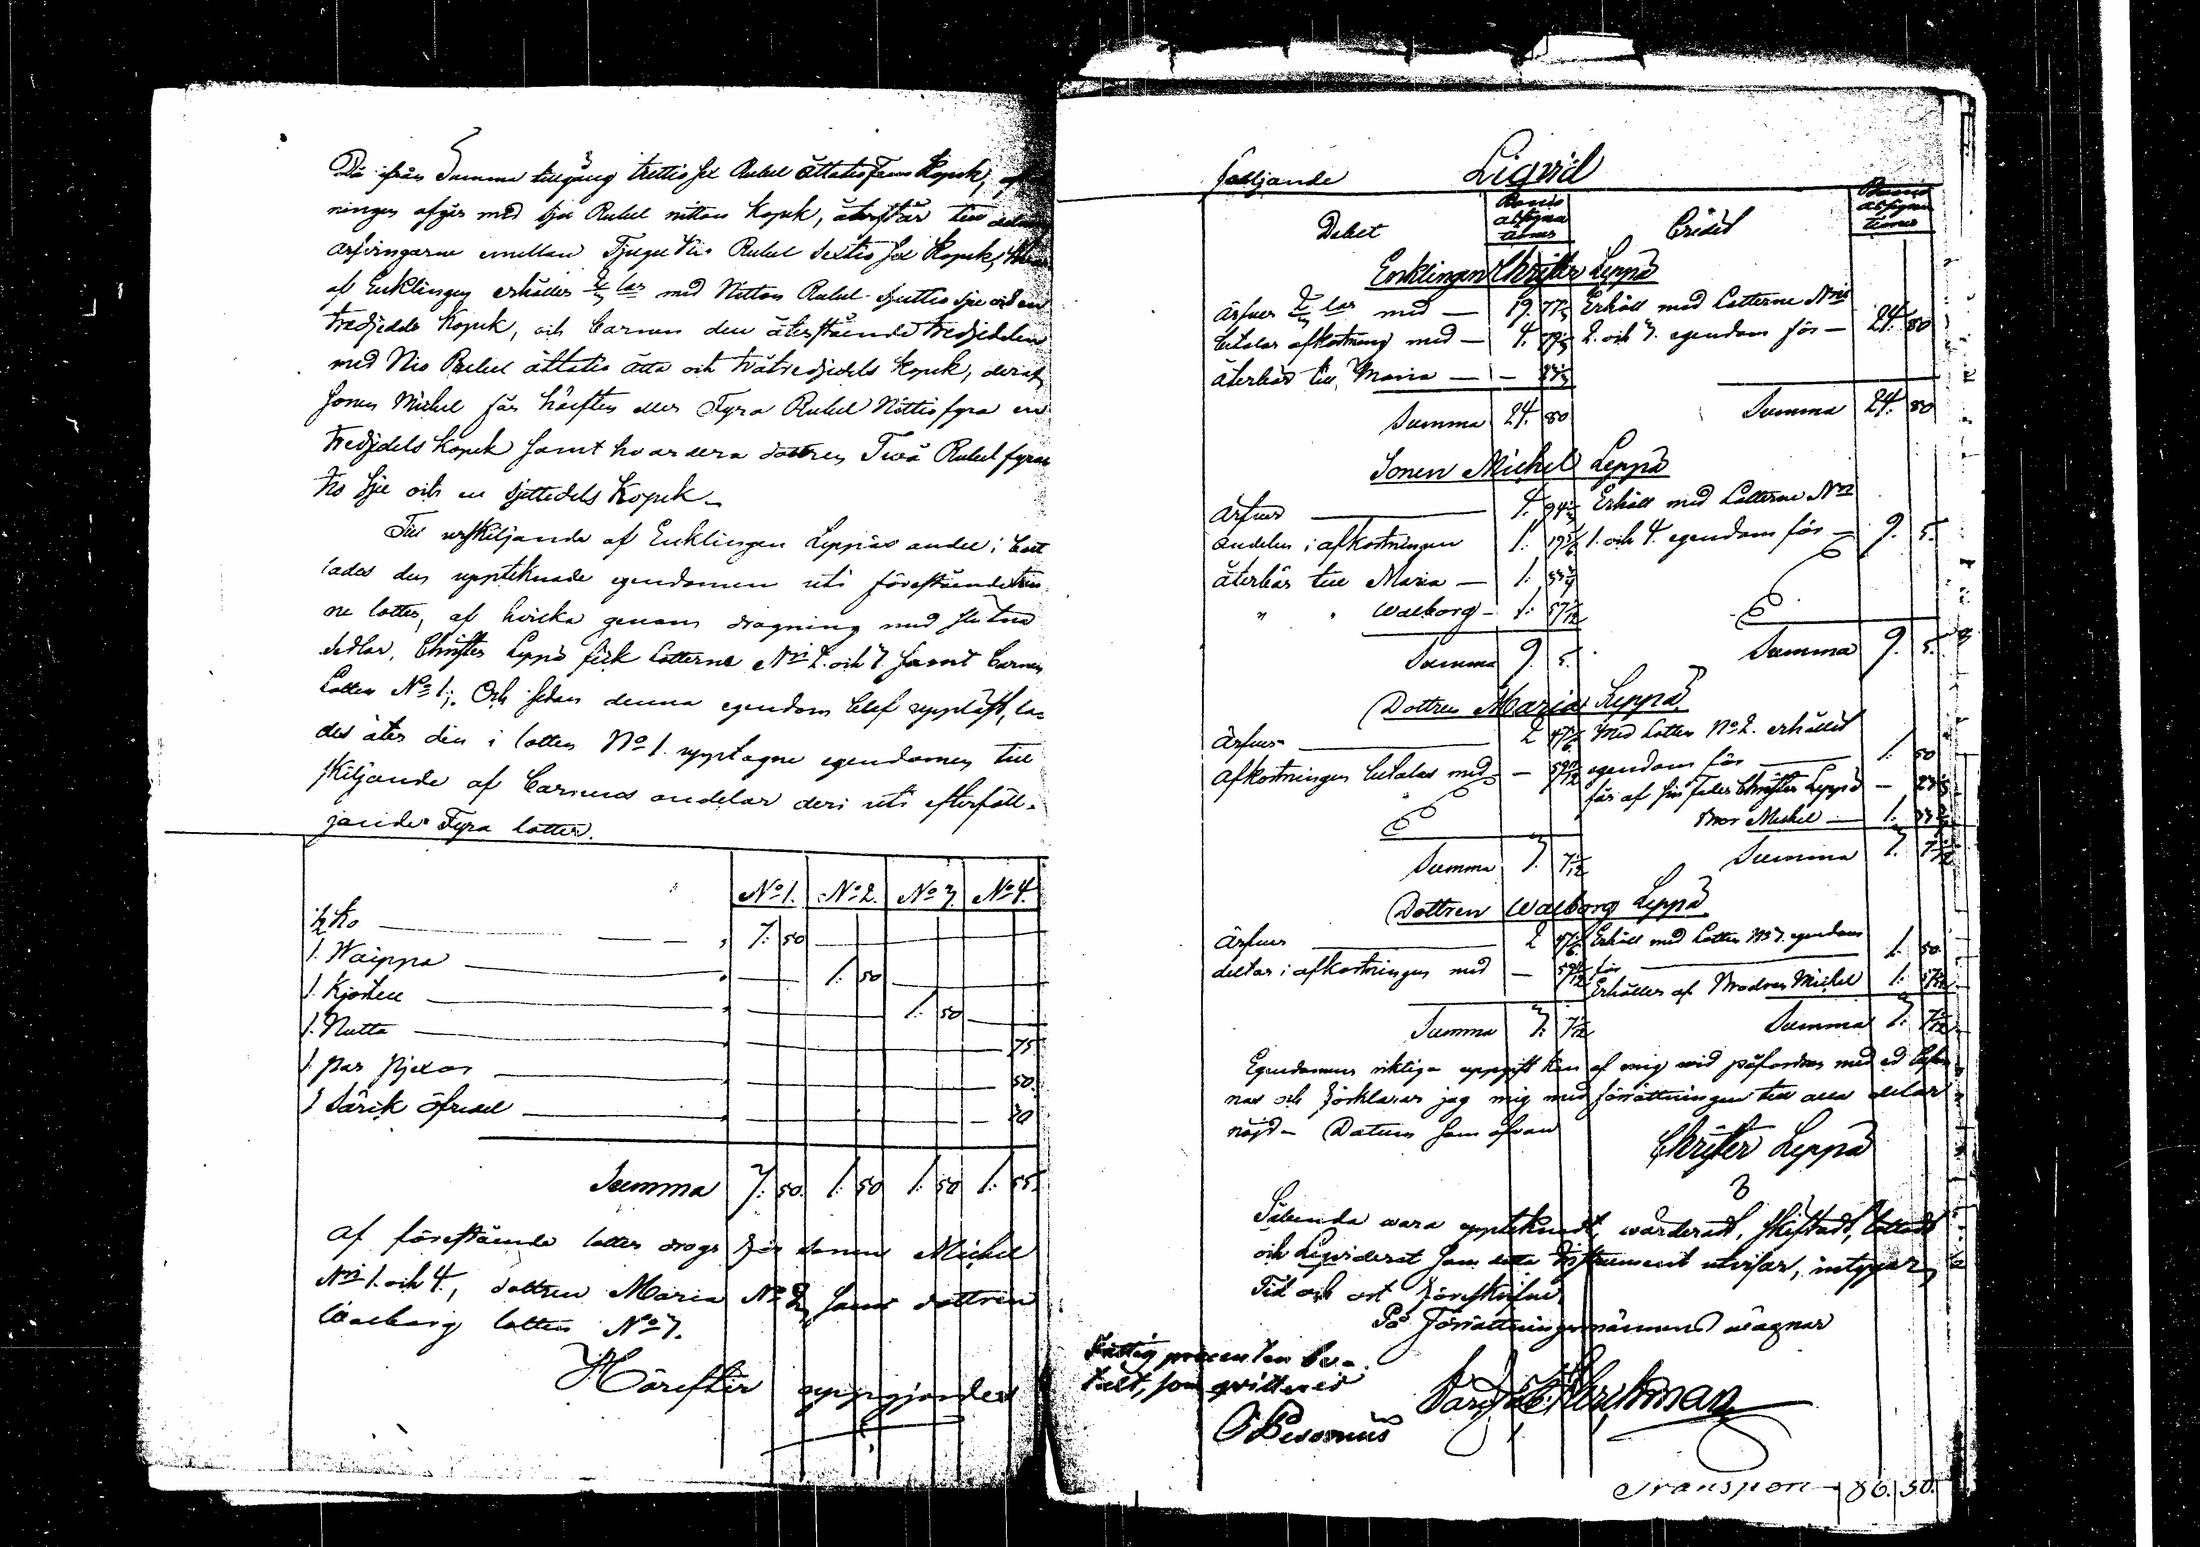 Då ifrån Summa tillgång trettiosex Rubel åttatiofem Kopek, af
ningen afgår med sju Rubel nitton Kopek, återstår till
arfvingarne emellan Tjugu Nio Rubel Sextio sex Kopek,
af Enklingen erhåller 2/3 lar med Nitton Rubel sjuttio sju och en
tredjedels Kopek, och Barnen den återstående tredjedelen
med Nio Rubel åttatio åtta och tvåtredjedels Kopek, deraf
Sonen Michel får hälften eller Fyra Rubel Nittiofyra en
tredjedels Kopek samt hvardera dottren Två Rubel fyra
tio sju och en sjettedels Kopek.
Till urskiljande af Enklingen Leppäs andel i boet
lades den uppteknade egendomen uti föreståendetren
ne lotter, af hvilka genom dragning med slutna
sedlar, Christer Leppä fick Lotterne Nris 2. och 3. samt Barnen
Lotten No 1.; Och sedan denna egendom blef uppläst, la-
des åter den i lotten No 1. upptagne egendomen till
skiljande af Barnens andelar deri uti efterföll-
jande Fyra lotter.
No 1. No 2. No 3. No 4.
1/2 Ko 7: 50
1. Waippa 1: 50
1. Kjortell 1: 50
1. Nutta 75
1. par 50.
1 Särik öfverdel 30
Summa 7: 50. 1: 50 1: 50 1: 55.
Af förestående lotter drogs för sonen Michel
Nris 1. och 4., dottren Maria No 2., samt dottren
Walborg lotten No 3.
Härefter uppgjordes
följande Liqvid
Debet Banco assignationer Credit Banco assignationer
Enklingen Christer Leppä
Ärfver 2/3 lar med — 19. 77 1/3 Erhåll med Lotterne Nris
betalar afkortning med — 4. 79 1/3 2. och 3. egendom för — 24. 80
återbär till Maria — — 23 1/3
Summa 24. 80 Summa 24. 80
Sonen Michel Leppä
Ärfver 4. 94 1/3 Erhåll med Lotterne Nris
andelen i afkortningen 1: 19 5/6 1. och 4. egendom för — 9. 5.
återbär till Maria — 1: 33 1/4
" " Walborg — 1: 57 7/12
Summa 9. 5. Summa 9. 5.
Dottren Maria Leppä
Ärfver 2 47 1/6 Med Lotten No 2. erhållit
Afkortningen betalas med — 59 11/12 egendom för 1. 50
får af sin Fader Christer Leppä — 23 1/3
Bror Michel — 1. 33
Summa 3. 7 1/12 Summa 3. 7 1/12
Dottren Walborg Leppä
Ärfver 2 47 1/6 Erhåll med Lotten No 3. egendom
deltar i afkortningen med — 59 11/12 för 1. 50.
Erhåller af Brodren Michel 1: 57 7/12
Summa 3: 7 1/12 Summa 3. 7 1/12
Egendomens riktiga uppgift kan af mig vid påfordran med ed
nas och förklarar jag mig med förrättningen till alla delar
nöjd — Datum som ofvan
Christer Leppä
Sålunda vara uppteknadt, värderadt, skiftadt, lottadt
och Liqvideret som detta Instrument utvisar, intygar
Tid och ort förskrifne
På Förrättningsmännens vägnar
Fattig procenten be-
talt, som qvitteras
Transport — 86. 50.